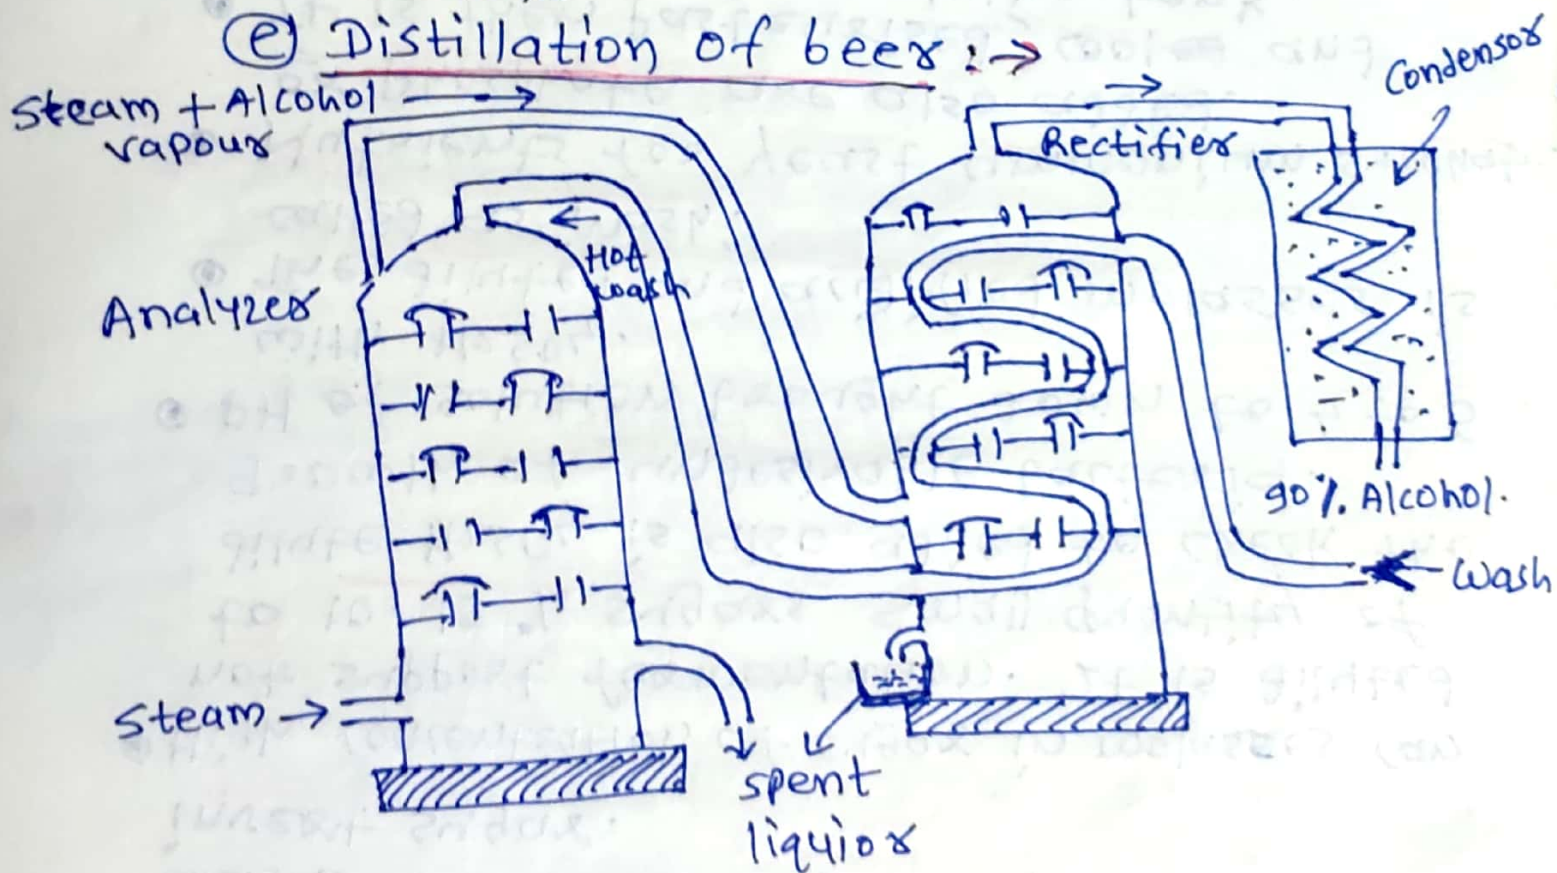 (e) Distillation of beer :→
Steam + Alcohol →
vapour
Condensor
Rectifier
Hot
wash
Analyzer
90% Alcohol.
Wash
Steam →
spent
liquior